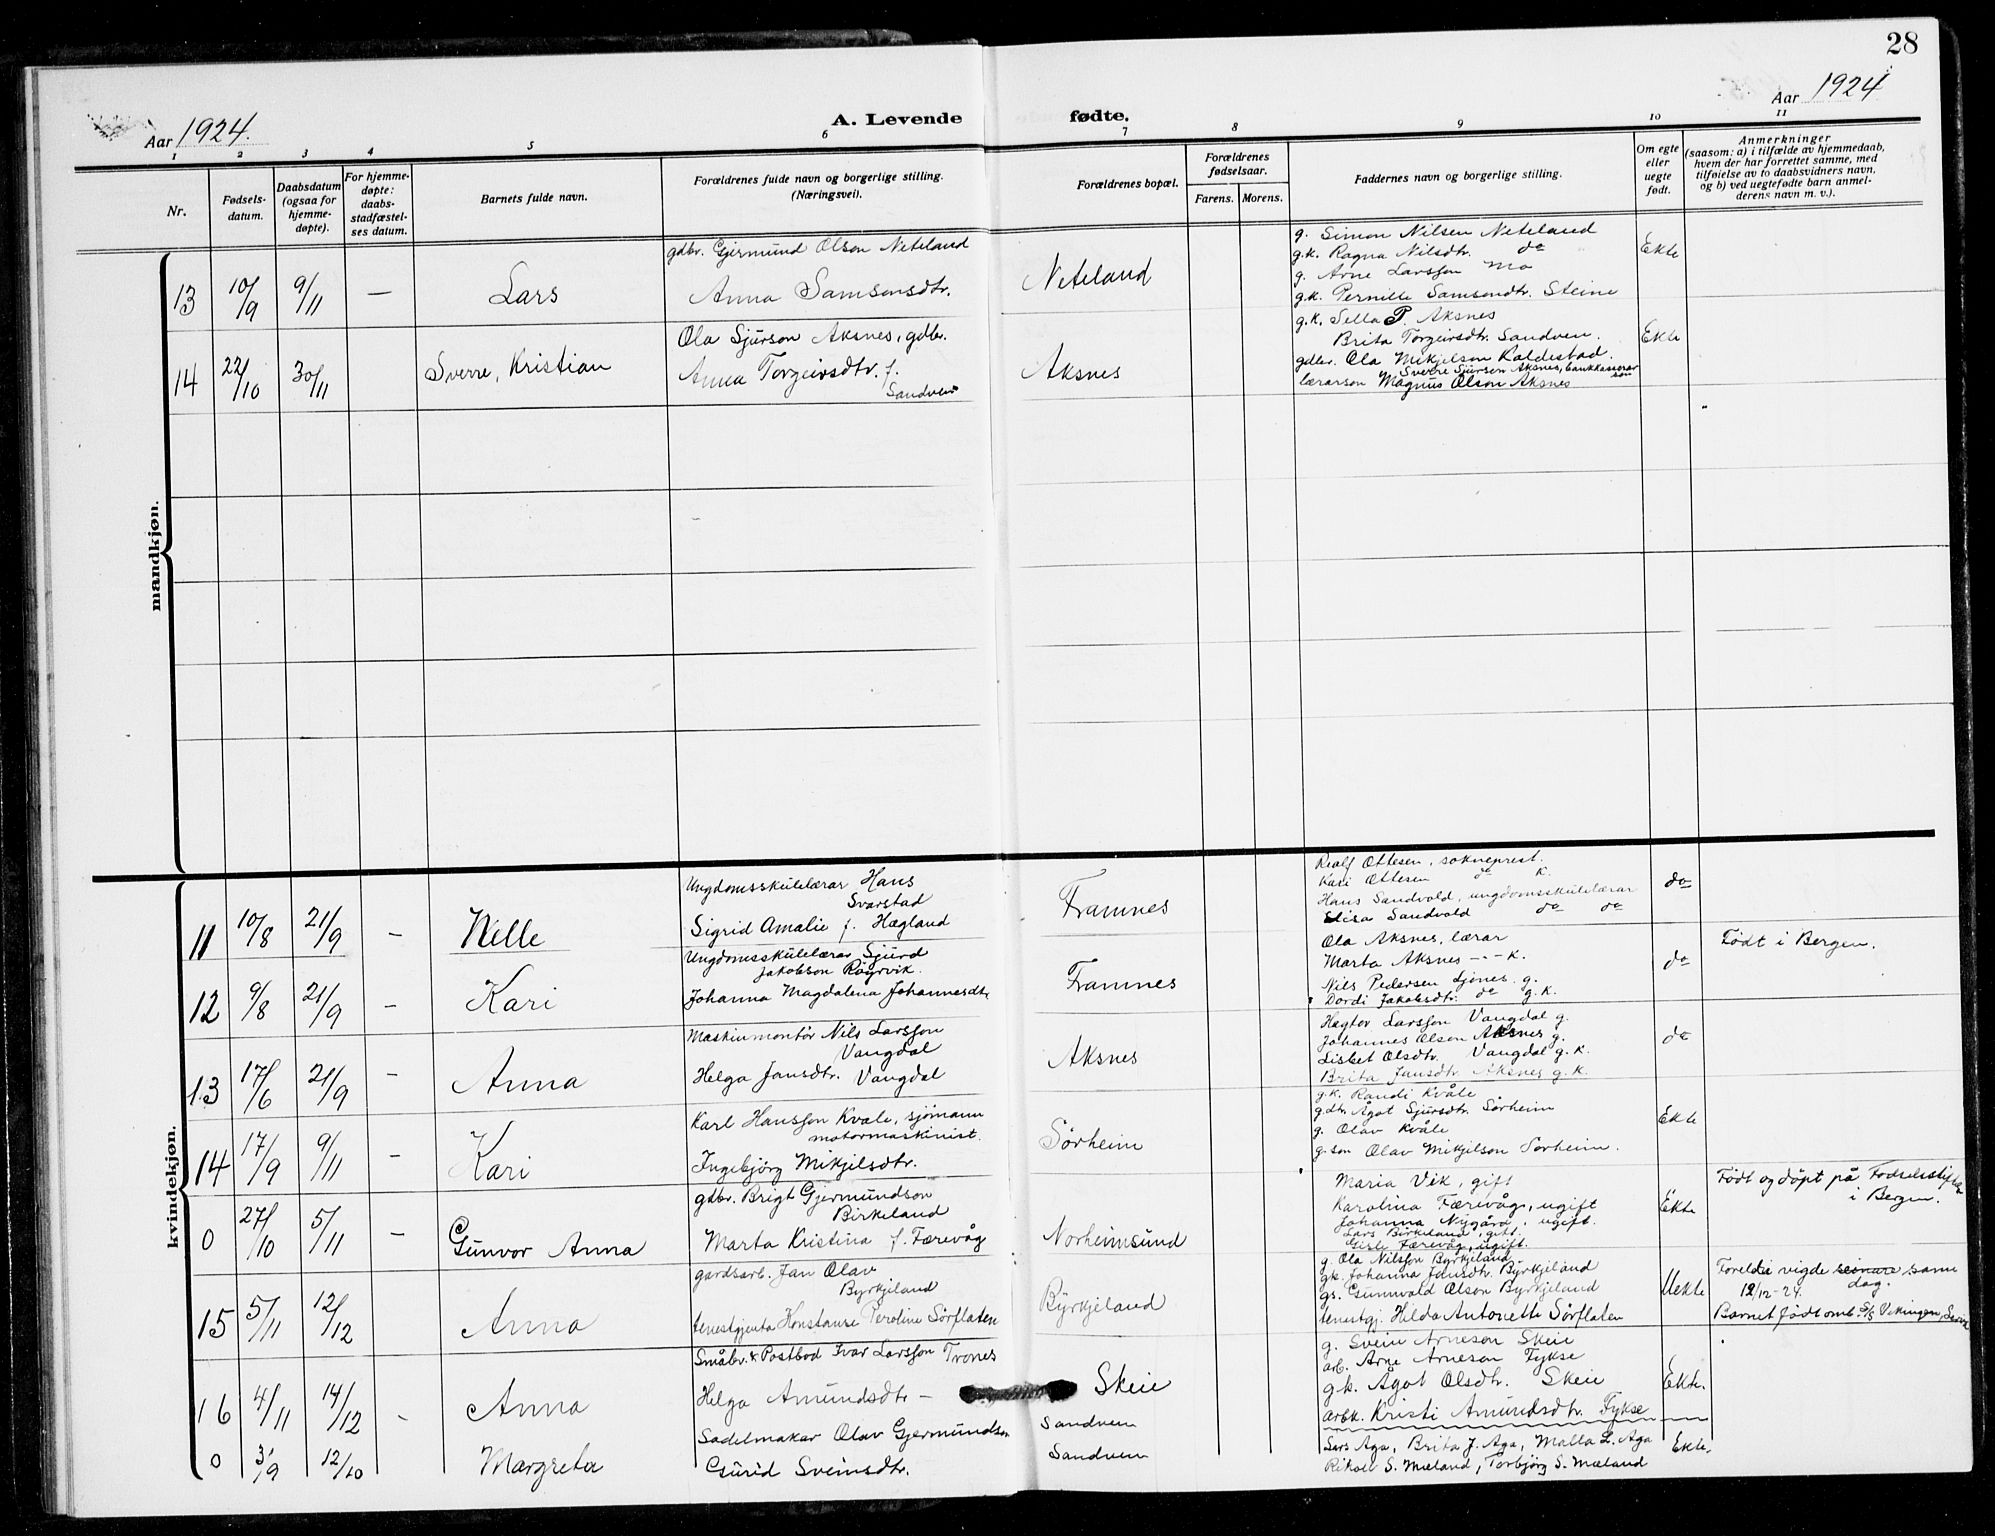 28
Aar 1924.
A. Levende
fødte.
Aar 1924
1 2 3 4 5 6 7 8 9 10 11
Nr.
Fødsels-
datum.
Daabsdatum
(ogsaa for
hjemme-
døpte).
For hjemme-
døpte:
daabs-
stadfæstel-
ses datum.
Barnets fulde navn.
Forældrenes fulde navn og borgerlige stilling.
(Næringsvei).
Forældrenes bopæl.
Forældrenes
fødselsaar.
Farens. Morens.
Faddernes navn og borgerlige stilling.
Om egte
eller
uegte
født.
Anmerkninger
(saasom: a) i tilfælde av hjemmedaab,
hvem der har forrettet samme, med
tilføielse av to daabsvidners navn,
og b) ved uegtefødte barn anmel-
derens navn m. v.).
mandkjøn.
13 10/9 9/11 — Lars
gdbr. Gjermund Olson Neteland
Anna Samsonsdtr.
Neteland
g. Simon Nilsen Neteland
g.k. Ragna Nilsdtr. do
g. Arne Larsson Mo
g.k. Pernille Samsondtr. Steine
Ekte
14 22/10 30/11 Sverre, Kristian
Ola Sjurson Aksnes, gdbr.
Anna Torgeirsdtr. f.
Sandven
Aksnes
g.k. Sella P. Aksnes
Brita Torgeirsdtr. Sandven.
gdbr. Ola Mikjelson Kaldestad.
Sverre Sjurson Aksnes, bankkasserar
son
lærarson Magnus Olson Aksnes
Ekte
kvindekjøn.
11 10/8 21/9 – Wille
Ungdomsskulelærar Hans
Svarstad
Sigrid Amalie f. Hægland
Framnes
Realf Ottesen, sokneprest.
Kari Ottesen do k.
Hans Sandvold, ungdomsskulelærar
Elisa Sandvold do do
do
12 9/8 21/9 – Kari
Ungdomsskulelærar Sjurd
Jakobson Røyrvik.
Johanna Magdalena Johannesdtr.
Framnes
Ola Aksnes, lærar
Marta Aksnes -"- K.
Nils Pedersen Ljones g.
Dordi Jakobsdtr. do g.k.
do
Født i Bergen.
13 17/6 21/9 – Anna
Maskinmontør Nils Larsson
Vangdal
Helga Jansdtr. Vangdal
Aksnes
Hagtor Larsson Vangdal g.
Johannes Olson Aksnes g.
Lisbet Olsdtr. Vangdal g.k.
Brita Jansdtr. Aksnes g.k.
do
14 17/9 9/11 – Kari
Karl Hansson Kvale, sjømann
motormaskinist.
Ingebjørg Mikjelsdtr.
Sørheim
g.k. Randi Kvåle
g.dtr. Ågot Sjursdtr. Sørheim
g. Olav Kvåle
g.son Olav Mikjelson Sørheim.
Ekte
0 27/10 5/11 – Gunvor Anna
gdbr. Brigt Gjermundson
Birkeland
Marta Kristina f. Færevåg
Norheimsund
Maria Vik, gift
Karolina Færevåg, ugift
Johanna Nygård, ugift.
Lars Birkeland, gift.
Gisle Færevåg, ugift.
Ekte
Født og døpt på Fødselsstiftelse
i Bergen.
15 5/11 12/12 Anna
gardsarb. Jan Olav
Byrkjeland
tenestgjenta Konstanse Peroline Sørflaten
Byrkjeland
g. Ola Nilsson Byrkjeland
gk. Johanna Jansdtr. Byrkjeland
gs. Gunnvald Olson Byrkjeland
tenestgj. Hilda Antonette Sørflaten
Uekte
Foreldri vigde seinare same
12/12-24. dag.
Barnet født omb. S/S Vikingen,
16 4/11 14/12 – Anna
Småbr. & Postbod Ivar Larsson Trones
Helga Amundsdtr –
Skeie
g. Svein Arneson Skeie
arb. Arne Arneson Fykse
g.k. Ågot Olsdtr. Skeie
arbk. Kristi Amundsdtr. Fykse
Ekte.
0 3/9 12/10 Margreta
Sadelmakar Olav Gjermundson
Gurid Sveinsdtr.
Sandven
Sandven
Lars Aga, Brita J. Aga, Malla L. Aga
Rikoll S. Mæland, Torbjørg S. Mæland
Ekte.